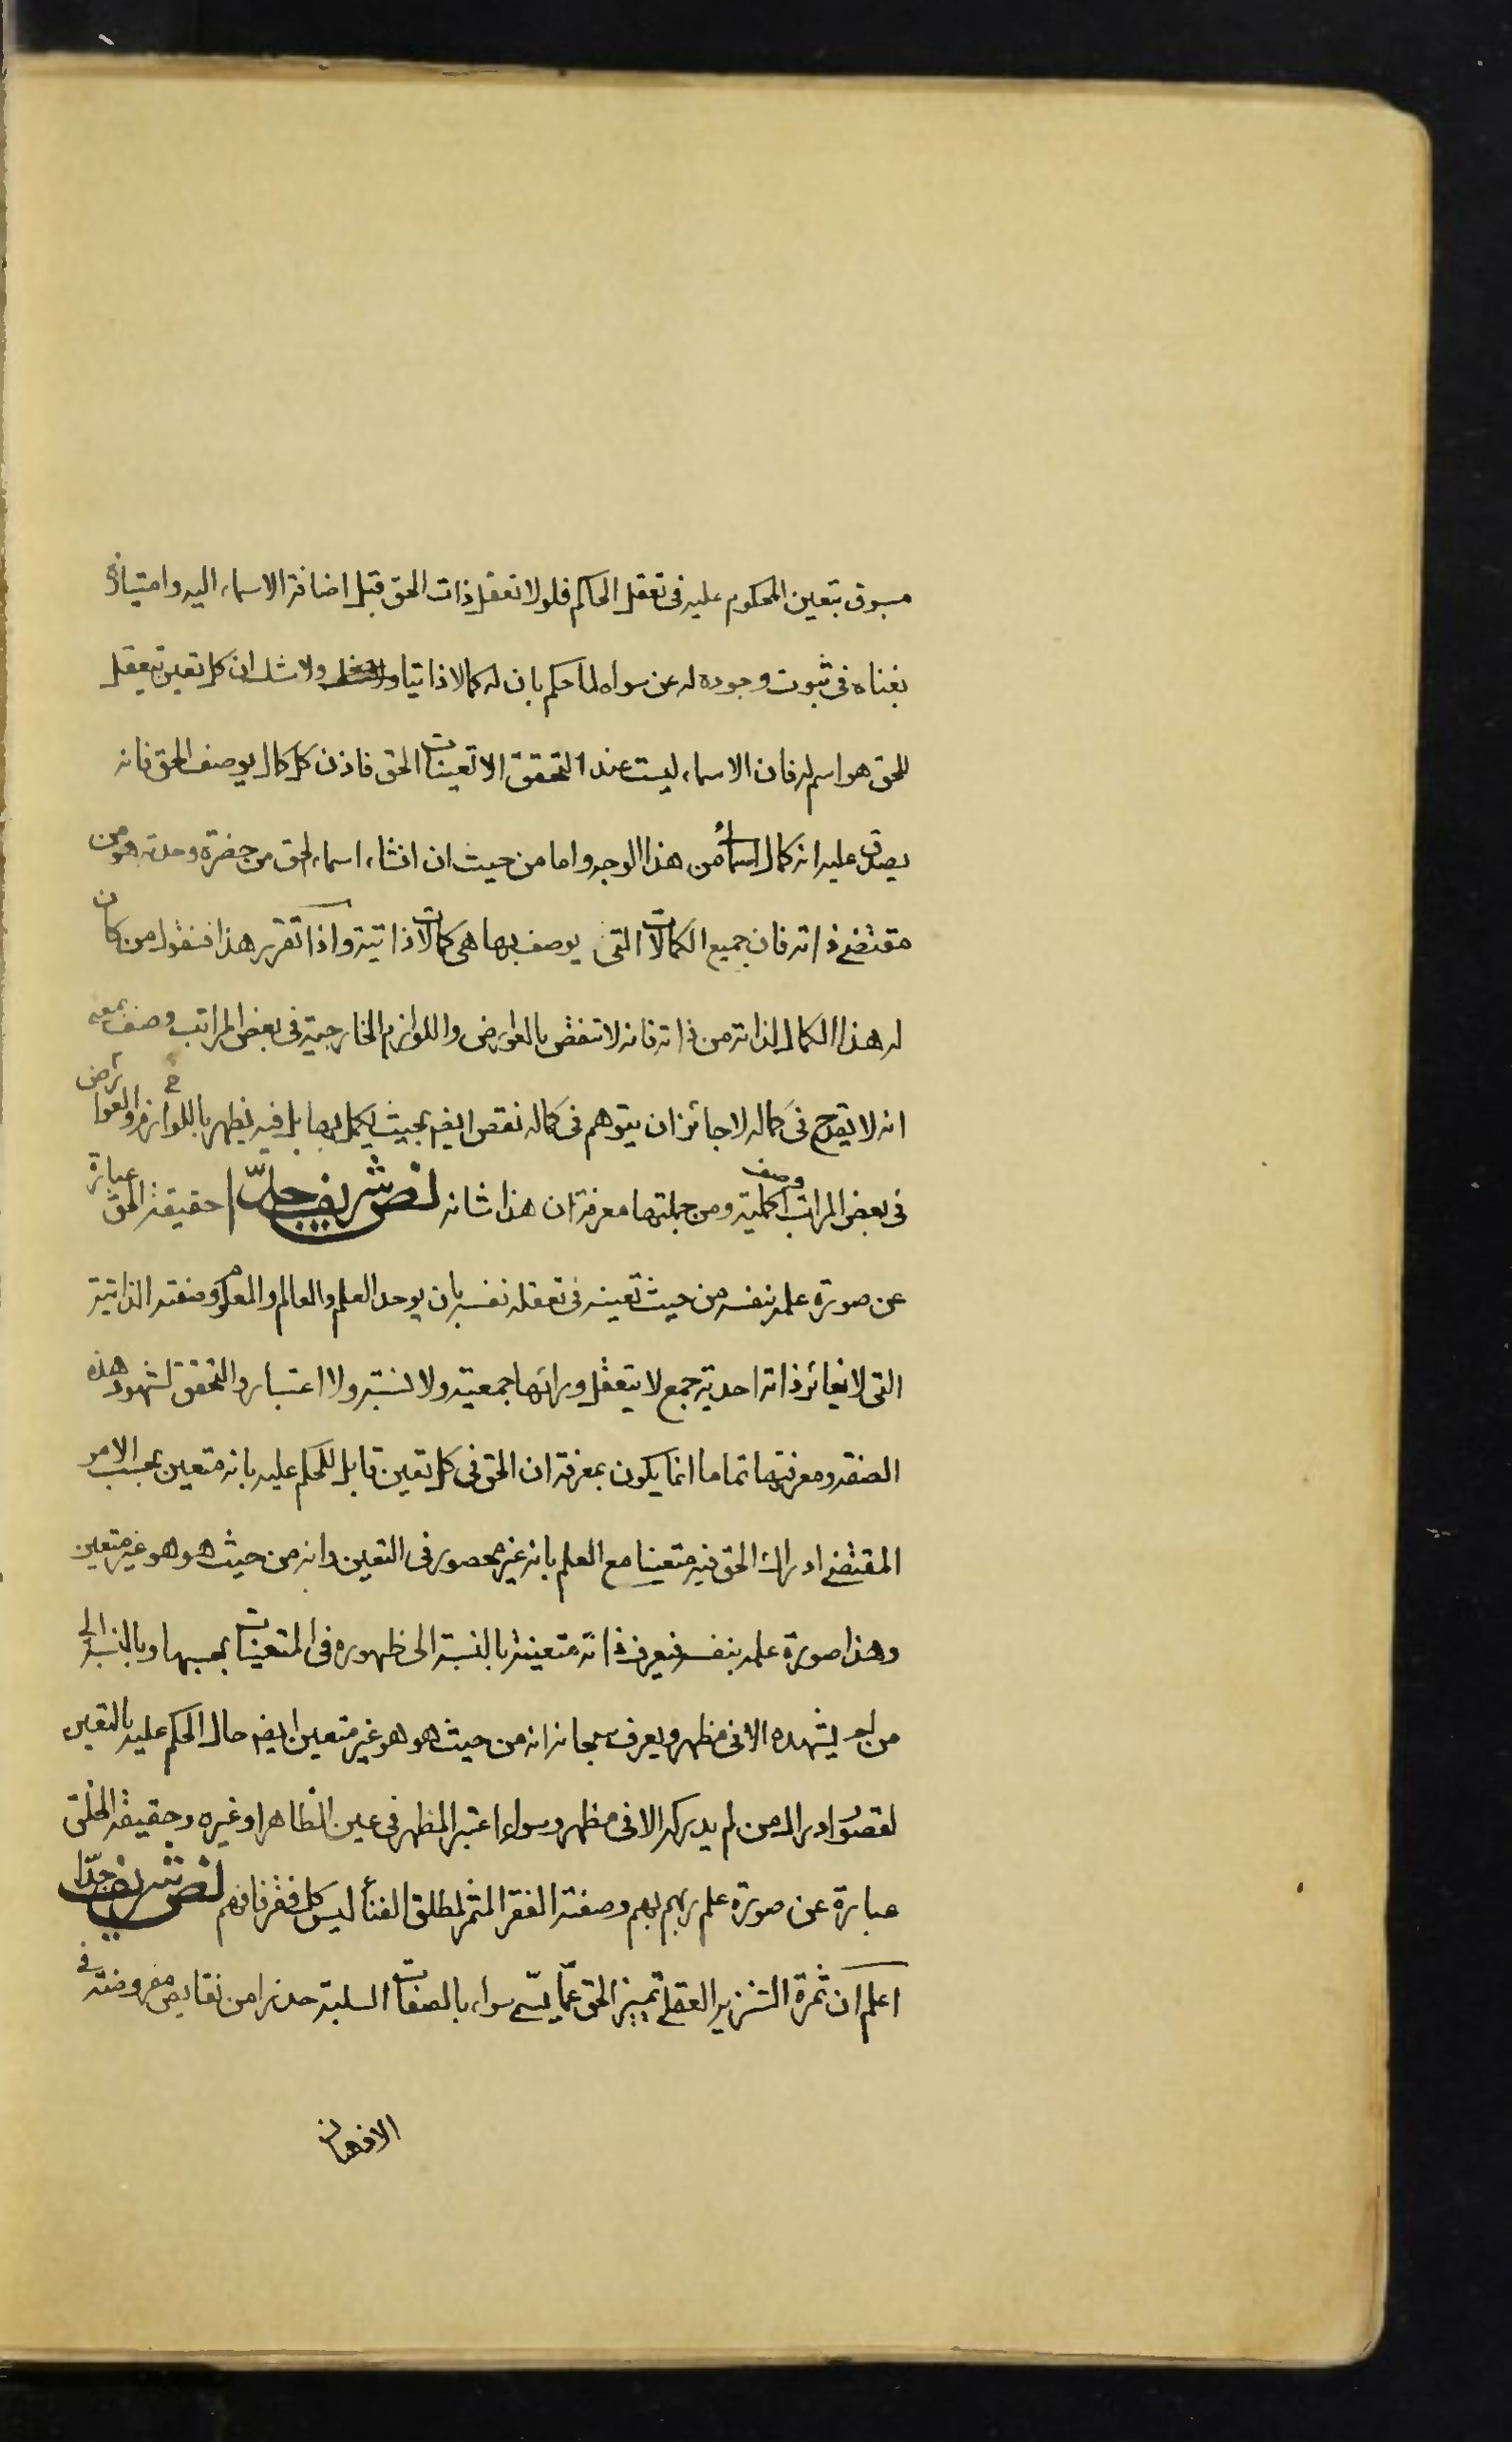 مسبوق بتعين المحكوم عليه فى تعقل الحاكم فلولا تعقل ذات الحق قبل اضافة الاسماء اليه وامتيازه
بغناه فى ثبوت وجوده له عن سواه لما حكم بان له كمالا ذاتيا ولا شك ان كل تعين يتعقل
للحق هو اسم له فان الاسماء ليست عند التحقق الا تعينات الحق فاذن كل كمال يوصف الحق فانه
يصدق عليه انه كمال اسمائى من هذا الوجه واما من حيث ان انشاء اسماء الحق من حضرة وحدته هو من
مقتضى ذاته فان جميع الكمالات التى يوصف بها هى كمالات ذاتية واذا تقرر هذا فنقول من كان
له هذا الكمال لذاته من ذاته فانه لا تنقص بالعوارض واللوازم الخارجية فى بعض المراتب وصف بمعنى
انه لا يقدح فى كماله لا جائز ان يتوهم فى كماله نقص ايضا بحيث يكمل بها بل فيه يظهر باللوازم والعوارض
فى بعض المراتب وصف اكملية ومن جملتها معرفة ان هذا شانه نص شريف جلى حقيقة الحق عبارة
عن صورة علمه بنفسه من حيث تعينه فى تعقله نفسه بان يوحد العلم والعالم والمعلوم وصفته الذاتية
التى لا يغائر ذاته احدية جمع لا يتعقل ورائها جمعية ولا نسبة ولا اعتبار والتحقق لشهود هذه
الصفة ومعرفتها تماما انما يكون بمعرفة ان الحق فى كل تعين قابل للحكم عليه بانه متعين بحسب الامر
المقتضى ادراك الحق فيه متعينا مع العلم بانه غير محصور فى التعين وانه من حيث هو هو غير متعين
وهذا صورة علمه بنفسه فيعرف ذاته متعينة بالنسبة الى ظهوره فى المتعينات بحسبها وبالنسبة الى
من لم يشهده الا فى مظهر ويعرف سبحانه انه من حيث هو هو غير متعين ايضا حال الحكم عليه بالتعين
لقصور ادراك من لم يدركه الا فى مظهر وسواء اعتبر المظهر فى عين الظاهر او غيره وحقيقة الخلق
عبارة عن صورة علم ربهم بهم وصفته الفقر المثمر لمطلق الغنأ ليس كل فقر فافهم نص شريف جدا
اعلم ان ثمرة التنزيه العقلى تميز الحق عما يسمى سواه بالصفات السلبية حذرا من نقايص مفروضة فى
الاذهان